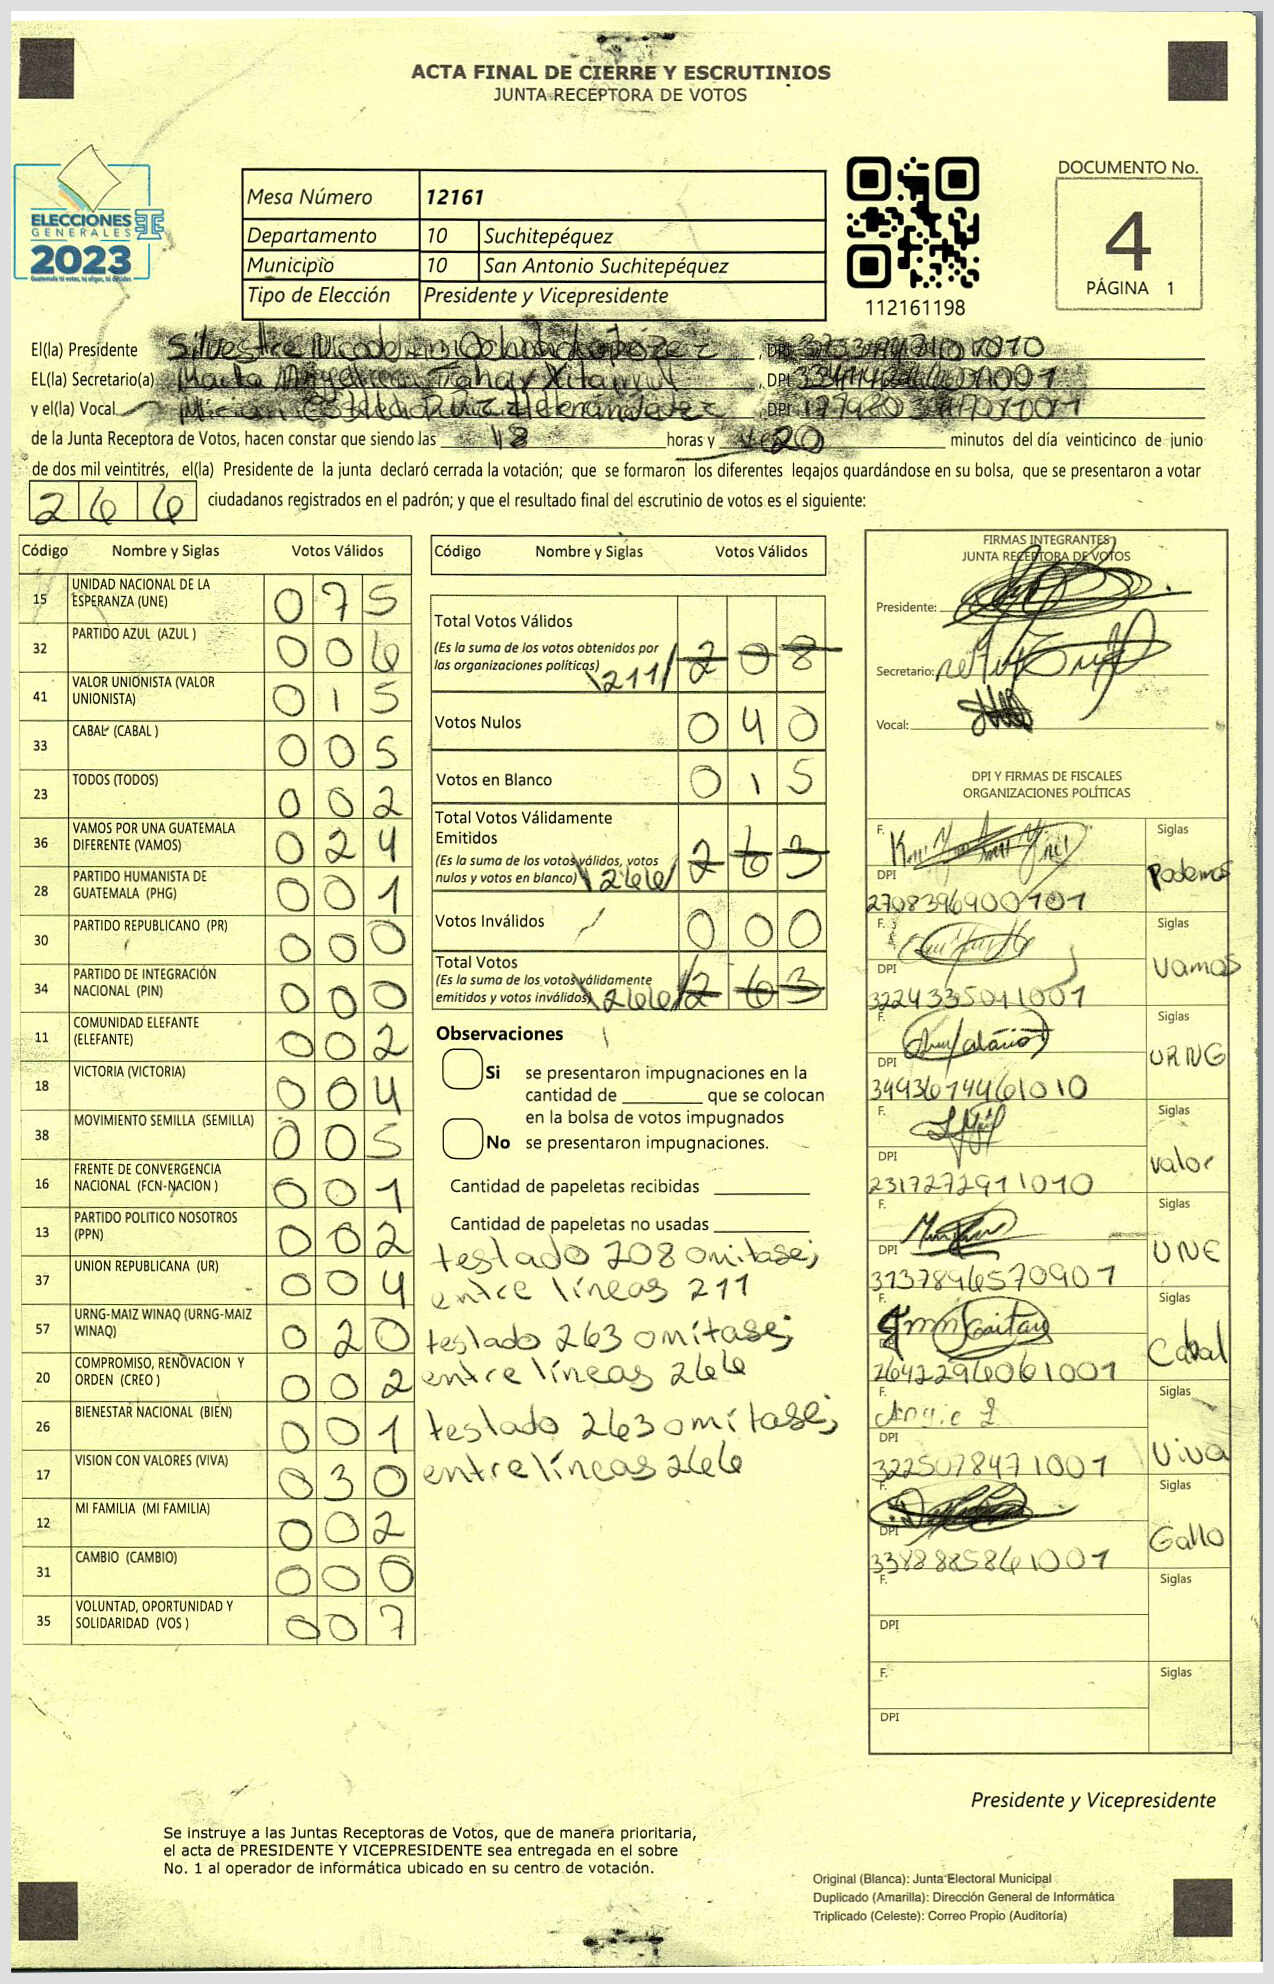 ACTA FINAL DE CIERRE Y ESCRUTINIOS
JUNTA RECEPTORA DE VOTOS
ELECCIONES
GENERALES
2023
Mesa Número 12161
Departamento 10 Suchitepéquez
Municipio 10 San Antonio Suchitepéquez
Tipo de Elección Presidente y Vicepresidente
112161198
DOCUMENTO No.
4
PÁGINA 1
El(la) Presidente Silvestre , DPI
EL(la) Secretario(a) , DPI
y el(la) Vocal DPI
de la Junta Receptora de Votos, hacen constar que siendo las 18 horas y 20 minutos del día veinticinco de junio
de dos mil veintitrés, el(la) Presidente de la junta declaró cerrada la votación; que se formaron los diferentes legajos quardándose en su bolsa, que se presentaron a votar
266 ciudadanos registrados en el padrón; y que el resultado final del escrutinio de votos es el siguiente:
Código Nombre y Siglas Votos Válidos
15 UNIDAD NACIONAL DE LA ESPERANZA (UNE) 075
32 PARTIDO AZUL (AZUL ) 006
41 VALOR UNIONISTA (VALOR UNIONISTA) 015
33 CABAL (CABAL ) 005
23 TODOS (TODOS) 002
36 VAMOS POR UNA GUATEMALA DIFERENTE (VAMOS) 024
28 PARTIDO HUMANISTA DE GUATEMALA (PHG) 001
30 PARTIDO REPUBLICANO (PR) 000
34 PARTIDO DE INTEGRACIÓN NACIONAL (PIN) 000
11 COMUNIDAD ELEFANTE (ELEFANTE) 002
18 VICTORIA (VICTORIA) 004
38 MOVIMIENTO SEMILLA (SEMILLA) 005
16 FRENTE DE CONVERGENCIA NACIONAL (FCN-NACION ) 001
13 PARTIDO POLITICO NOSOTROS (PPN) 002
37 UNION REPUBLICANA (UR) 004
57 URNG-MAIZ WINAQ (URNG-MAIZ WINAQ) 020
20 COMPROMISO, RENOVACION Y ORDEN (CREO ) 002
26 BIENESTAR NACIONAL (BIEN) 001
17 VISION CON VALORES (VIVA) 030
12 MI FAMILIA (MI FAMILIA) 002
31 CAMBIO (CAMBIO) 000
35 VOLUNTAD, OPORTUNIDAD Y SOLIDARIDAD (VOS ) 007
Código Nombre y Siglas Votos Válidos
Total Votos Válidos
(Es la suma de los votos obtenidos por
las organizaciones políticas) \211/ 208
Votos Nulos 040
Votos en Blanco 015
Total Votos Válidamente
Emitidos
(Es la suma de los votos válidos, votos
nulos y votos en blanco) \266/ 263
Votos Inválidos 000
Total Votos
(Es la suma de los votos válidamente
emitidos y votos inválidos) \266/ 263
Observaciones
Si se presentaron impugnaciones en la
cantidad de ________ que se colocan
en la bolsa de votos impugnados
No se presentaron impugnaciones.
Cantidad de papeletas recibidas
Cantidad de papeletas no usadas
testado 208 omitase;
entre líneas 211
testado 263 omítase;
entre líneas 266
testado 263 omítase;
entre líneas 266
FIRMAS INTEGRANTES
JUNTA RECEPTORA DE VOTOS
Presidente:
Secretario:
Vocal:
DPI Y FIRMAS DE FISCALES
ORGANIZACIONES POLÍTICAS
F. Siglas
DPI Podemos
2708396900101
F. Siglas
DPI Vamos
3224335011001
F. Siglas
DPI URNG
3493674461010
F. Siglas
DPI Valor
2317272911010
F. Siglas
DPI UNE
3137896570901
F. Siglas
DPI Cabal
2642296061001
F. Angie L Siglas
DPI Viva
3225078471001
F. Siglas
DPI Gallo
3388885861001
F. Siglas
DPI
F. Siglas
DPI
Presidente y Vicepresidente
Se instruye a las Juntas Receptoras de Votos, que de manera prioritaria,
el acta de PRESIDENTE Y VICEPRESIDENTE sea entregada en el sobre
No. 1 al operador de informática ubicado en su centro de votación.
Original (Blanca): Junta Electoral Municipal
Duplicado (Amarilla): Dirección General de Informática
Triplicado (Celeste): Correo Propio (Auditoría)